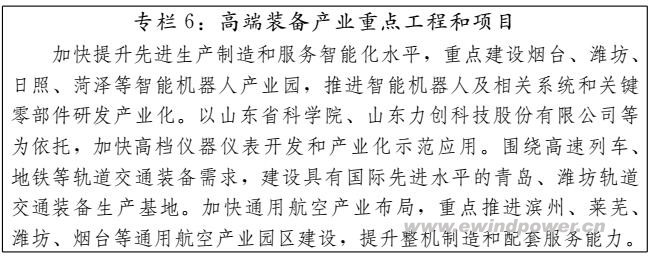 专栏 6：高端装备产业重点工程和项目
加快提升先进生产制造和服务智能化水平，重点建设烟台、潍坊、
日照、菏泽等智能机器人产业园，推进智能机器人及相关系统和关键
零部件研发产业化。以山东省科学院、山东力创科技股份有限公司等
为依托，加快高档仪器仪表开发和产业化示范应用。围绕高速列车、
地铁等轨道交通装备需求，建设具有国际先进水平的青岛、潍坊轨道
交通装备生产基地。加快通用航空产业布局，重点推进滨州、莱芜、
潍坊、烟台等通用航空产业园区建设，提升整机制造和配套服务能力。
www.ewindpower.cn